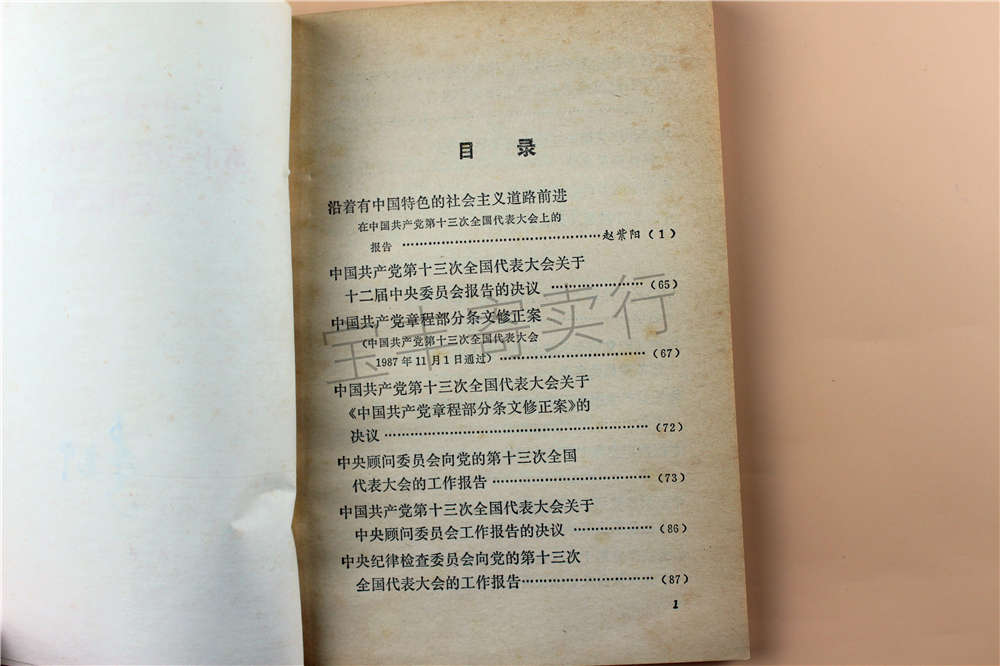 目 录
沿着有中国特色的社会主义道路前进
在中国共产党第十三次全国代表大会上的
报告 ……………………………………赵紫阳 (1)
中国共产党第十三次全国代表大会关于
十二届中央委员会报告的决议 ………………… (65)
中国共产党章程部分条文修正案
(中国共产党第十三次全国代表大会
1987年11月1日通过) ………………………… (67)
中国共产党第十三次全国代表大会关于
《中国共产党章程部分条文修正案》的
决议 ……………………………………………… (72)
中央顾问委员会向党的第十三次全国
代表大会的工作报告 …………………………… (73)
中国共产党第十三次全国代表大会关于
中央顾问委员会工作报告的决议 ……………… (86)
中央纪律检查委员会向党的第十三次
全国代表大会的工作报告 ……………………… (87)
1
宝丰寄卖行